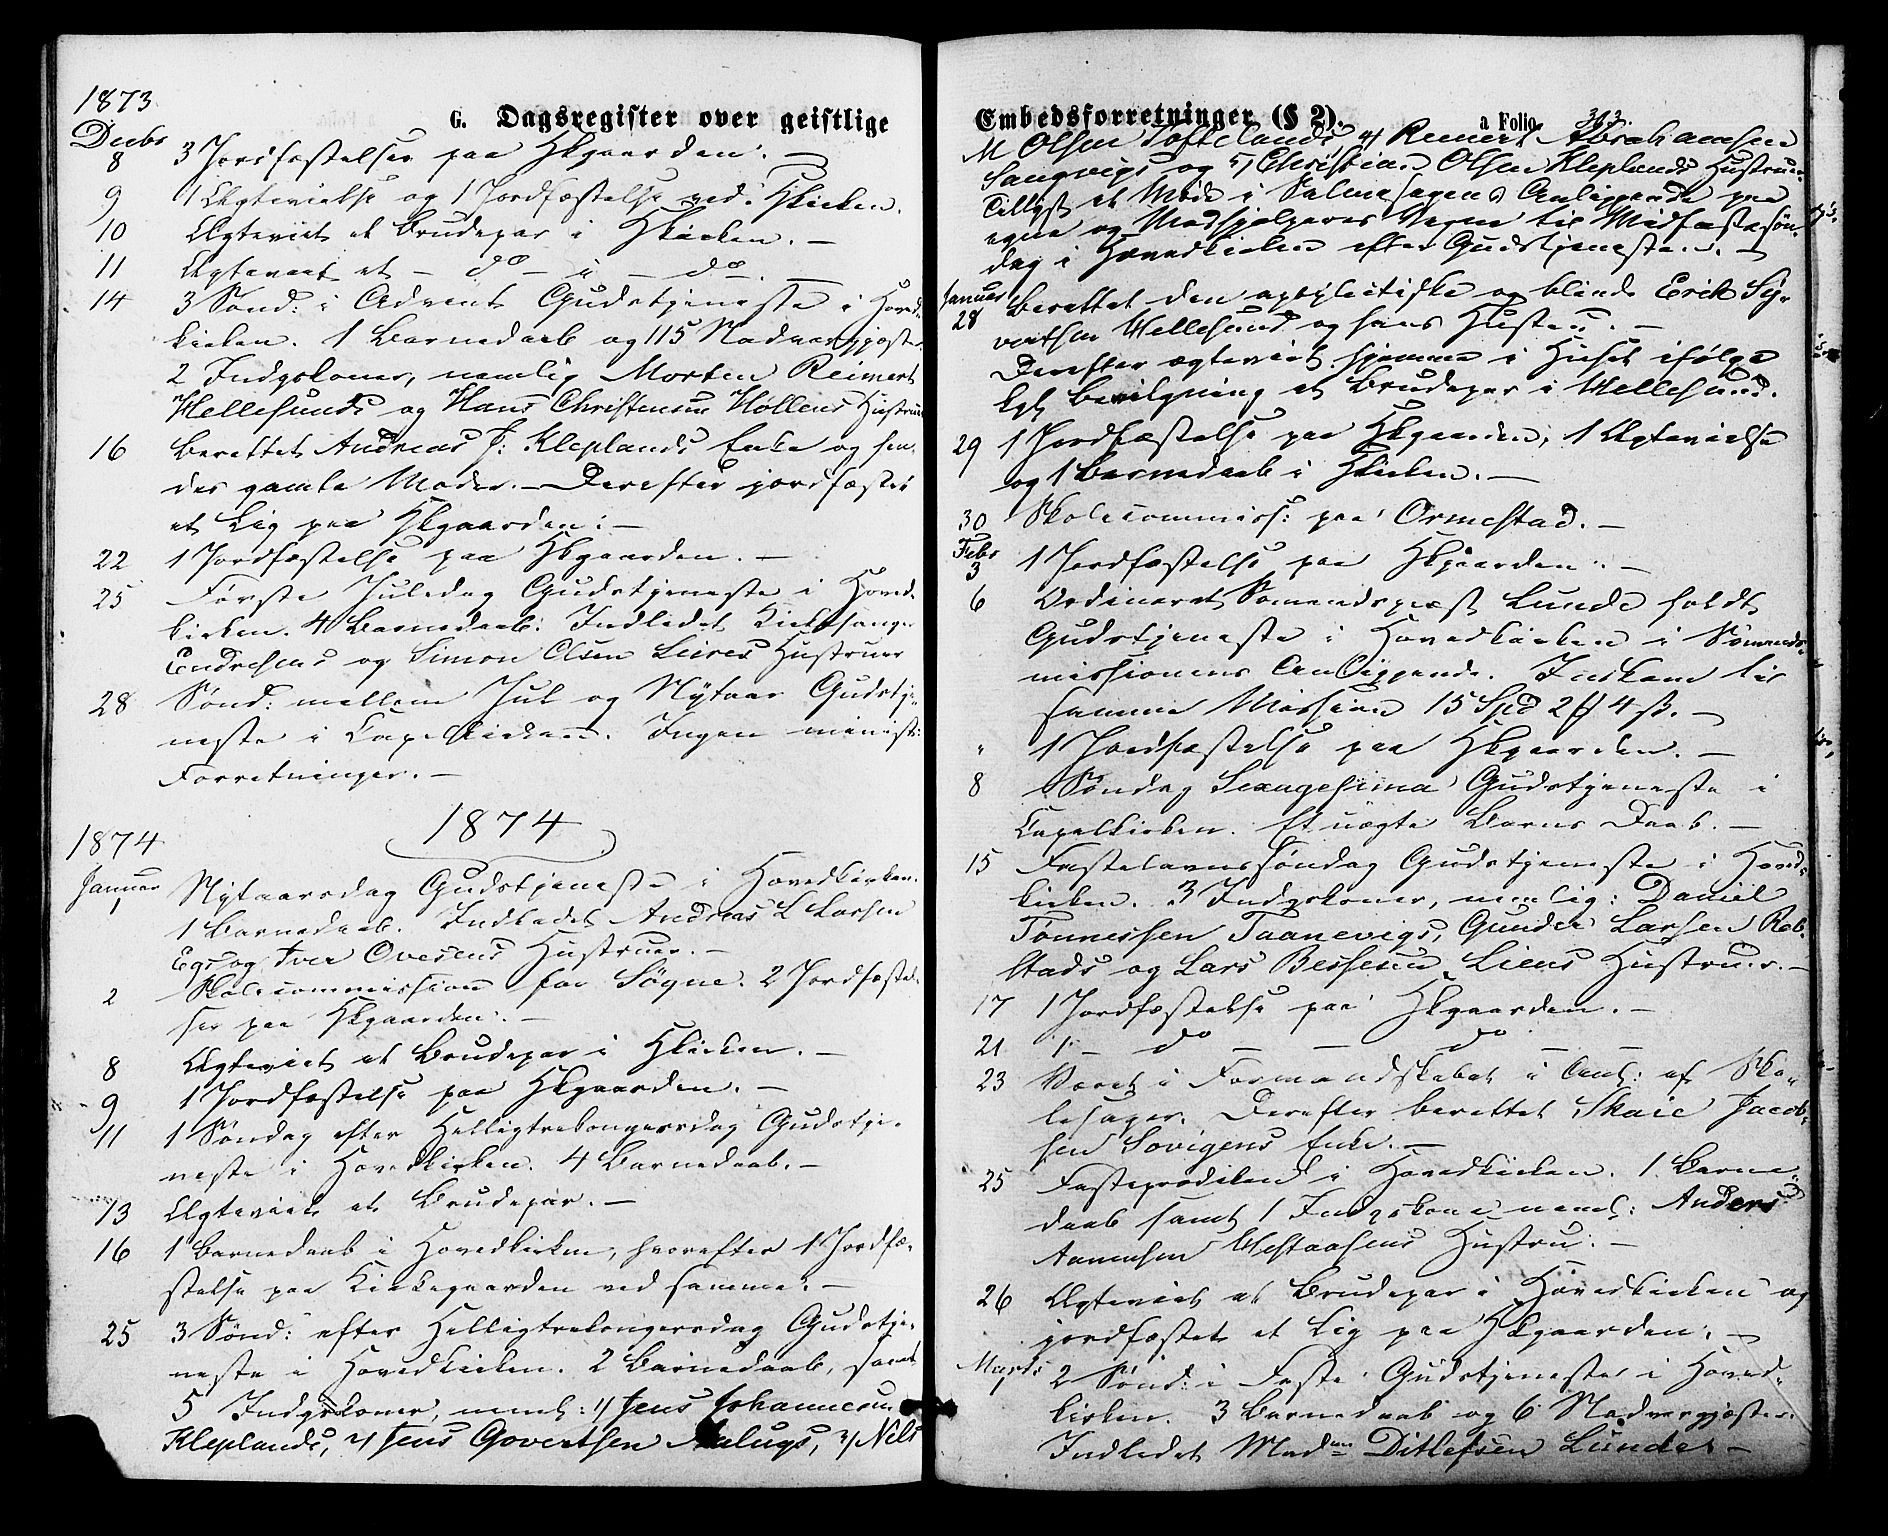 1873
G. Dagsregister over geistlige
Decbr
8 3 Jordfæstelser paa Hkgaarden. –
9 1 Ægtevielse og 1 Jordfæstelse ved Hkirken.
10 Ægteviet et Brudepar i Hkirken. –
11 Ægteviet et – do – i – do. –
14 3 Sønd: i Advent Gudstjeneste i Hoved-
kirken. 1 Barnedaab og 115 Nadvergjæster
2 Indgskoner, nemlig Morten Reimert
Hellesunds og Hans Christensen Høllens Hustruer
16 Berettet Andreas J: Kleplands Enke og hen-
des gamle Moder. – Derefter jordfæstet
et Lig paa Hkgaarden. –
22 1 Jordfæstelse paa Hkgaarden. –
25 Første Juledag Gudstjeneste i Hoved-
kirken. 4 Barnedaab. Indledet Kirkesanger
Endresens og Simon Olsen Leires Hustruer
28 Sønd: mellem Jul og Nytaar Gudstje-
neste i Capelkirken. Ingen minist:
Forretninger. –
1874
1874
Januar
1 Nytaarsdag Gudstjeneste i Hovedkirken.
1 Barnedaab. Indledet Andreas L Larsen
Egs og Iver Ovesens Hustruer. –
2 Skolecommission for Søgne. 2 Jordfæstel-
ser paa Hkgaarden. –
8 Ægteviet et Brudepar i Hkirken. –
9 1 Jordfæstelse paa Hkgaarden. –
11 1 Søndag efter Helligtrekongersdag Gudstje-
neste i Hovedkirken. 4 Barnedaab. –
13 Ægteviet et Brudepar. –
16 1 Barnedaab i Hovedkirken, hvorefter 1 Jordfæ-
stelse paa Kirkegaarden ved samme. –
25 3 Sønd: efter Helligtrekongersdag Gudstje-
neste i Hovedkirken. 2 Barnedaab, samt
5 Indgskoner, neml: 1) Jens Johannesen
Kleplands, 2) Jens Govertsen 3) Nils
Embedsforretninger (§ 2).
a Folio 303.
M Olsen Toftelands 4) Reinert Abrahamsen
Langvigs og 5) Christian Olsen Kleplands Hustruer.
Tillyst et Møde i Salmesagens Anliggende paa
egne og Medhjelperes Vegne til Midfastesøn-
dag i Hovedkirken efter Gudstjenesten. –
Januar
28 Berettet den apoplectiske og blinde Erik Sy-
vertsen Hellesund og hans Hustru. –
Derefter ægteviet hjemme i Huset ifølge
kgl Bevilgning et Brudepar i Hellesund.
29 1 Jordfæstelse paa Hkgaarden, 1 Ægtevielse
og 1 Barnedaab i Hkirken. –
30 Skolecommiss: paa Ormestad. –
Febr
3 1 Jordfæstelse paa Hkgaarden. –
6 Ordineret Sømandspræst Lunde holdt
Gudstjeneste i Hovedkirken i Sømands-
missionens Anliggende. Indkom til
samme Mission 15 Spd 2 ꝑ 4 ß. –
" 1 Jordfæstelse paa Hkgaarden. –
8 Søndag Sexagesima Gudstjeneste i
Capelkirken. Et uægte Barns Daab. –
15 Fastelavnssøndag Gudstjeneste i Hoved-
kirken. 3 Indgskoner, nemlig: Daniel
Tønnessen Taanevigs, Gunder Larsen Reb-
stads og Lars Bessesen Liens Hustruer. –
17 1 Jordfæstelse paa Hkgaarden. –
21 1 – do – – do – –
23 Været i Formandskabet i Anl: af Sko-
lesager. Derefter berettet Skaie Jacob-
sen Sovigens Enke. –
25 Fasteprædiken i Hovedkirken. 1 Barne-
daab samt 1 Indgskone neml: Anders
Aanensen Hestaasens Hustru. –
26 Ægteviet et Brudepar i Hovedkirken og
jordfæstet et Lig paa Hkgaarden. –
Marts
1 2 Sønd: i Faste Gudstjeneste i Hoved-
kirken. 3 Barnedaab og 6 Nadvergjæster.
Indledet Madm Ditlefsen Lunde. –